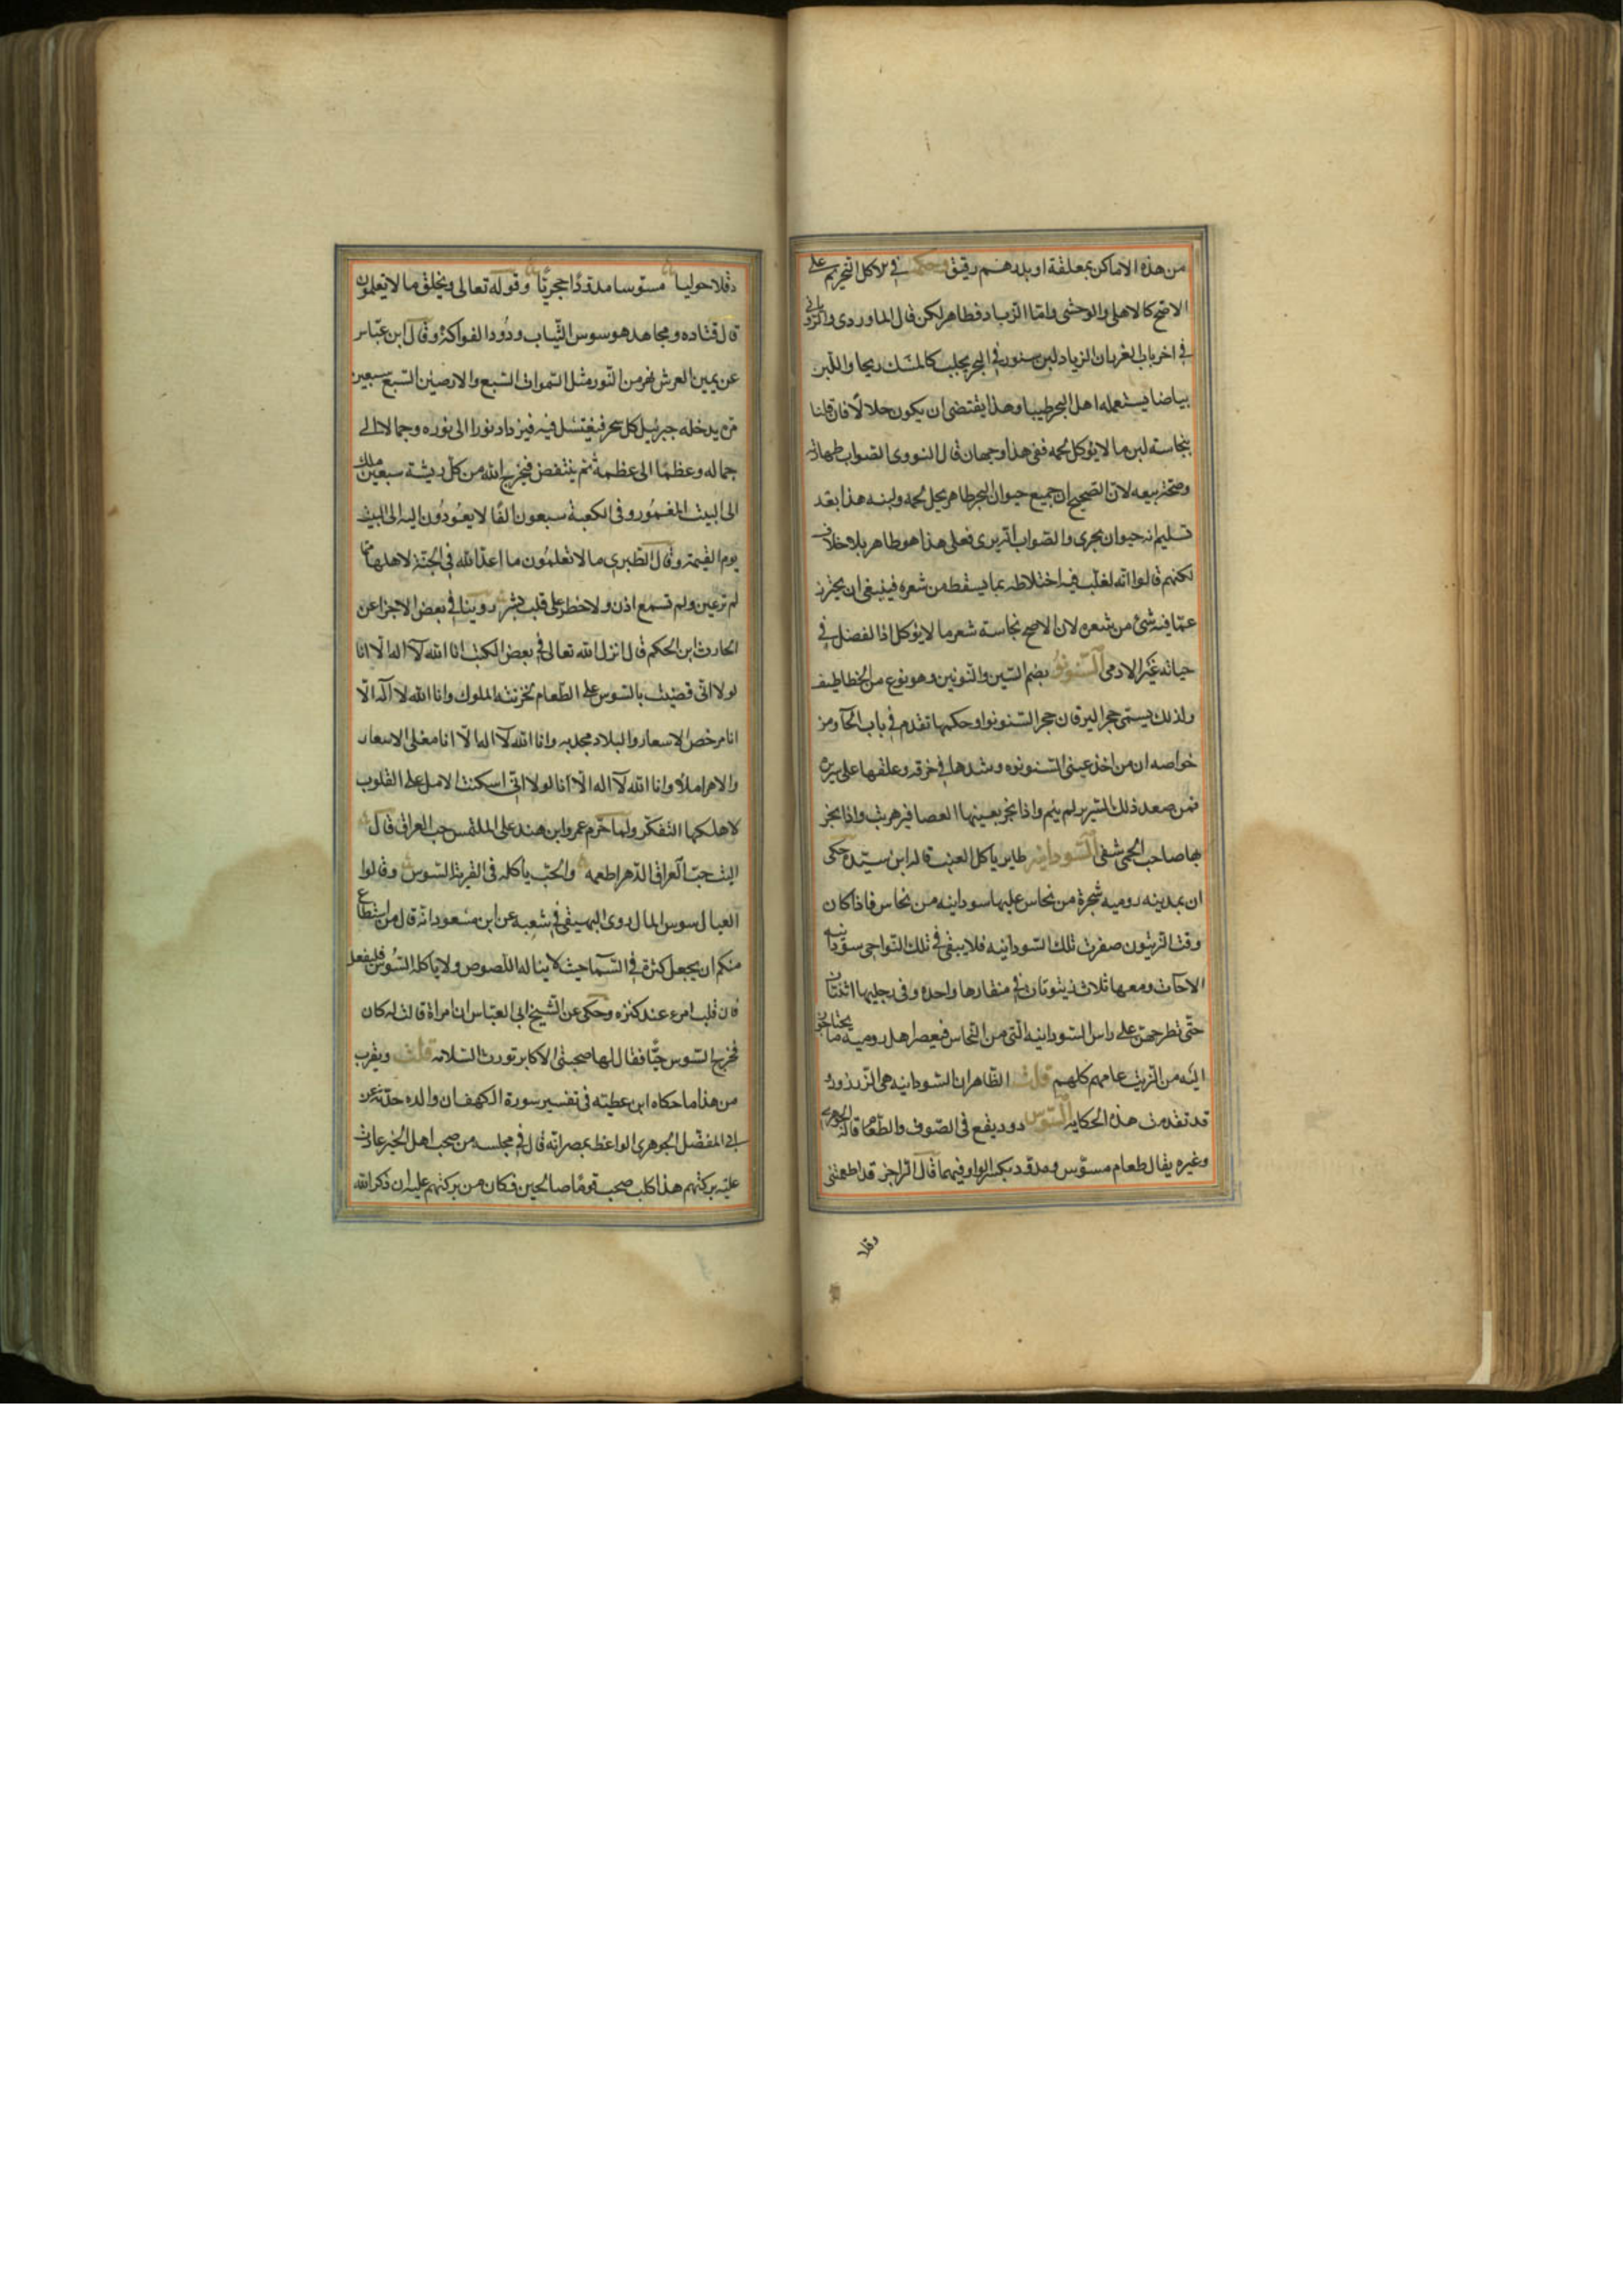 من هذه الاماكن بمعلقة او بدرهم رقيق وحكمه في الاكل التحريم على
الاصح كالاهلي والوحشي واما الزباد فطاهر لكن قال الماوردى والرويانى
في اخر باب الغرر بان الزباد لبن سنور في البحر يحلب كالمسك ريحا واللبن
بياضا يستعمله اهل البحر طيبا وهذا يقتضى ان يكون حلالا فان قلنا
بنجاسة لبن ما لا يؤكل لحمه ففى هذا وجهان قال النووى الصواب طهارته
وصحة بيعه لان الصحيح ان جميع حيوان البحر طاهر يحل لحمه ولبنه هذا بعد
تسليم انه حيوان بحرى والصواب انه برى فعلى هذا هو طاهر بلا خلاف
لكنهم قالوا انه لغلب فيه اختلاطه بما يسقط من شعره فينبغى ان يحترز
عما فيه شئ من شعره لان الاصح نجاسة شعر ما لا يؤكل اذا انفصل في
حياته غير الادمى السنونو بضم السين والنونين وهو نوع من الخطاطيف
ولذلك يسمى حجر اليرقان حجر السنونو وحكمها تقدم في باب الخا ومن
خواصه ان من اخذ عينى السنونوه وشدها في خرقه وعلقها على سرير
فمن صعد ذلك السرير لم ينم واذا بخر بعينها العصافير هربت واذا بخر
بها صاحب الحمى شفى السودانيه طاير ياكل العنب قاله ابن سيده حكى
ان بمدينه روميه شجرة من نحاس عليها سودانيه من نحاس فاذا كان
وقت الزيتون صفرت تلك السودانيه فلا يبقى في تلك النواحى سودانيه
الا جآت ومعها ثلاث زيتونات في منقارها واحده وفى رجليها اثنتان
حتى تطرحهن على راس السودانيه التى من النحاس فيعصر اهل روميه ما يحتاجون
اليه من الزيت عامهم كلهم قلت الظاهر ان السودانيه هى الزرزور و
قد تقدمت هذه الحكايه السوس دود يقع فى الصوف والطعام قاله الجوهرى
وغيره يقال طعام مسوس ومدود بكسر الواو فيهما قال الراجز قد اطعمتنى
دقلا
دقلا حوليا مسوسا مدودا حجريا وقوله تعالى ويخلق ما لا تعلمون
قال قتاده ومجاهد هو سوس الثياب ودود الفواكه وقال ابن عباس
عن يمين العرش نهر من النور مثل السموات السبع والارضين السبع سبعين
مره يدخله جبريل كل سحر فيغتسل فيه فيزداد نورا الى نوره وجمالا الى
جماله وعظما الى عظمة ثم ينتفض فيخرج الله من كل ريشة سبعين ملك
الى البيت المعمور وفى الكعبة سبعون الفا لا يعودون اليه الى البيت
يوم القيمة وقال الطبرى ما لا تعلمون ما اعد الله في الجنة لاهلها مما
لم تر عين ولم تسمع اذن ولا خطر على قلب بشر روينا في بعض الاجزا عن
الحارث ابن الحكم قال انزل الله تعالى في بعض الكتب انا الله لا اله الا انا
لولا انى قضيت بالسوس على الطعام لخزنته الملوك وانا الله لا اله الا
انا مرخص الاسعار والبلاد مجدبه وانا الله لا اله الا انا مغلى الاسعار
والاهرا ملأ وانا الله لا اله الا انا لولا انى اسكنت الامل على القلوب
لاهلكها التفكر ولما حرم عمرو ابن هند على الملتمس حب العراق قال
اليت حب العراق الدهر اطعمه والحب ياكله فى القرية السوس وقالوا
العيال سوس المال روى البهيقى في شعبه عن ابن مسعود انه قال من استطاع
منكم ان يجعل كنزه في السما حيث لا يناله اللصوص ولا ياكله السوس فليفعل
فان قلب امرء عند كنزه وحكى عن الشيخ ابى العباس ان امراة قالت له كان
فخرج السوس حيا فقال لها صحبتى الاكابر تورث السلامه قلت ويقرب
من هذا ما حكاه ابن عطيه فى تفسير سورة الكهف ان والده حدثه عن
ابى المفضل الجوهرى الواعظ بمصر انه قال في مجلسه من صحب اهل الخير عادت
عليه بركتهم هذا كلب صحب قوما صالحين فكان من بركتهم عليه ان ذكر الله